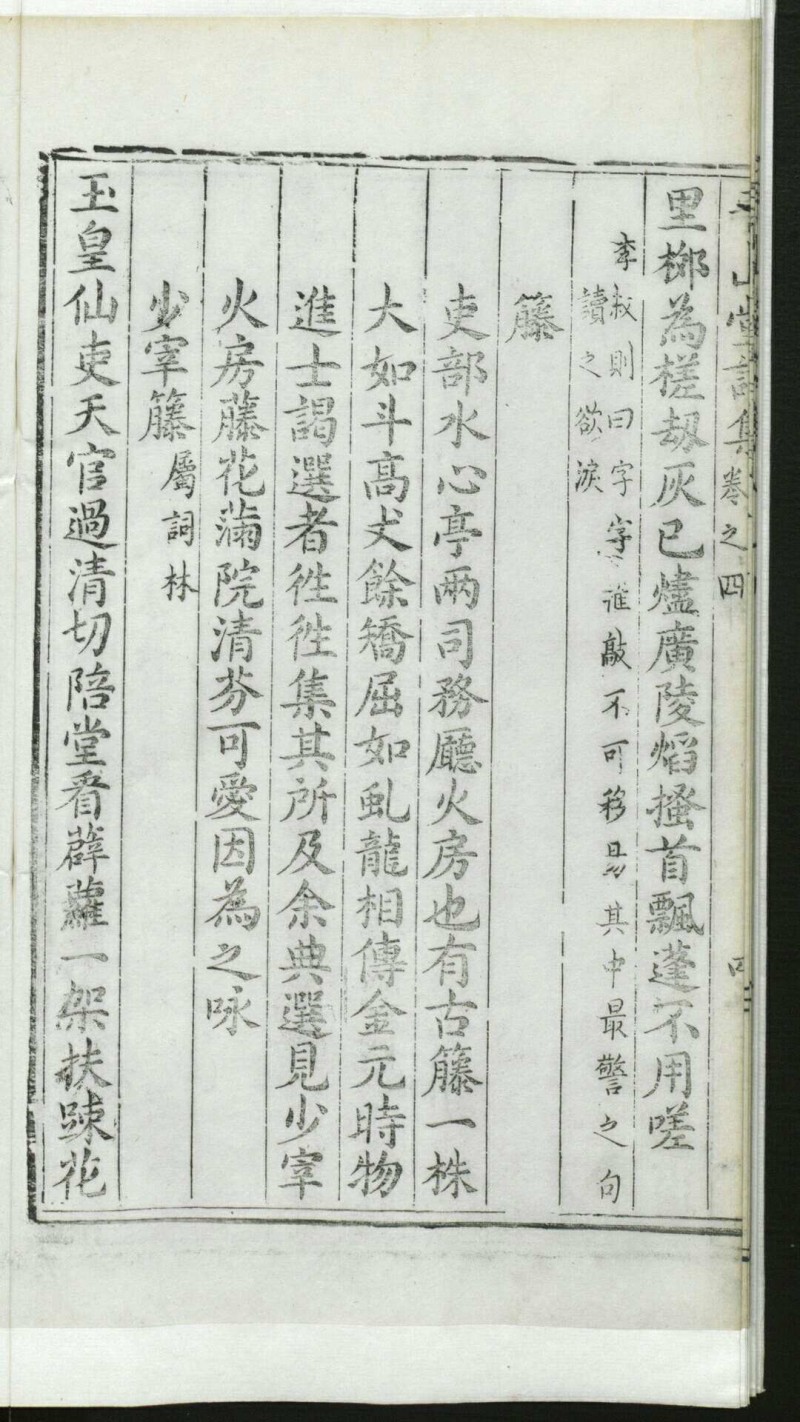 山堂詩集卷之四
里鄉為槎劫灰已燼廣陵焰搔首飄蓬不用嗟
李叔則曰字字推敲不可移易其中最警之句
讀之欲淚
籐
吏部水心亭兩司務廳火房也有古籐一株
大如斗高丈餘矯屈如虬龍相傳金元時物
進士謁選者徃徃集其所及余典選見少宰
火房藤花滿院清芬可愛因為之咏
少宰籐屬詞林
玉皇仙吏天官過清切陪堂看薜蘿一架扶踈花